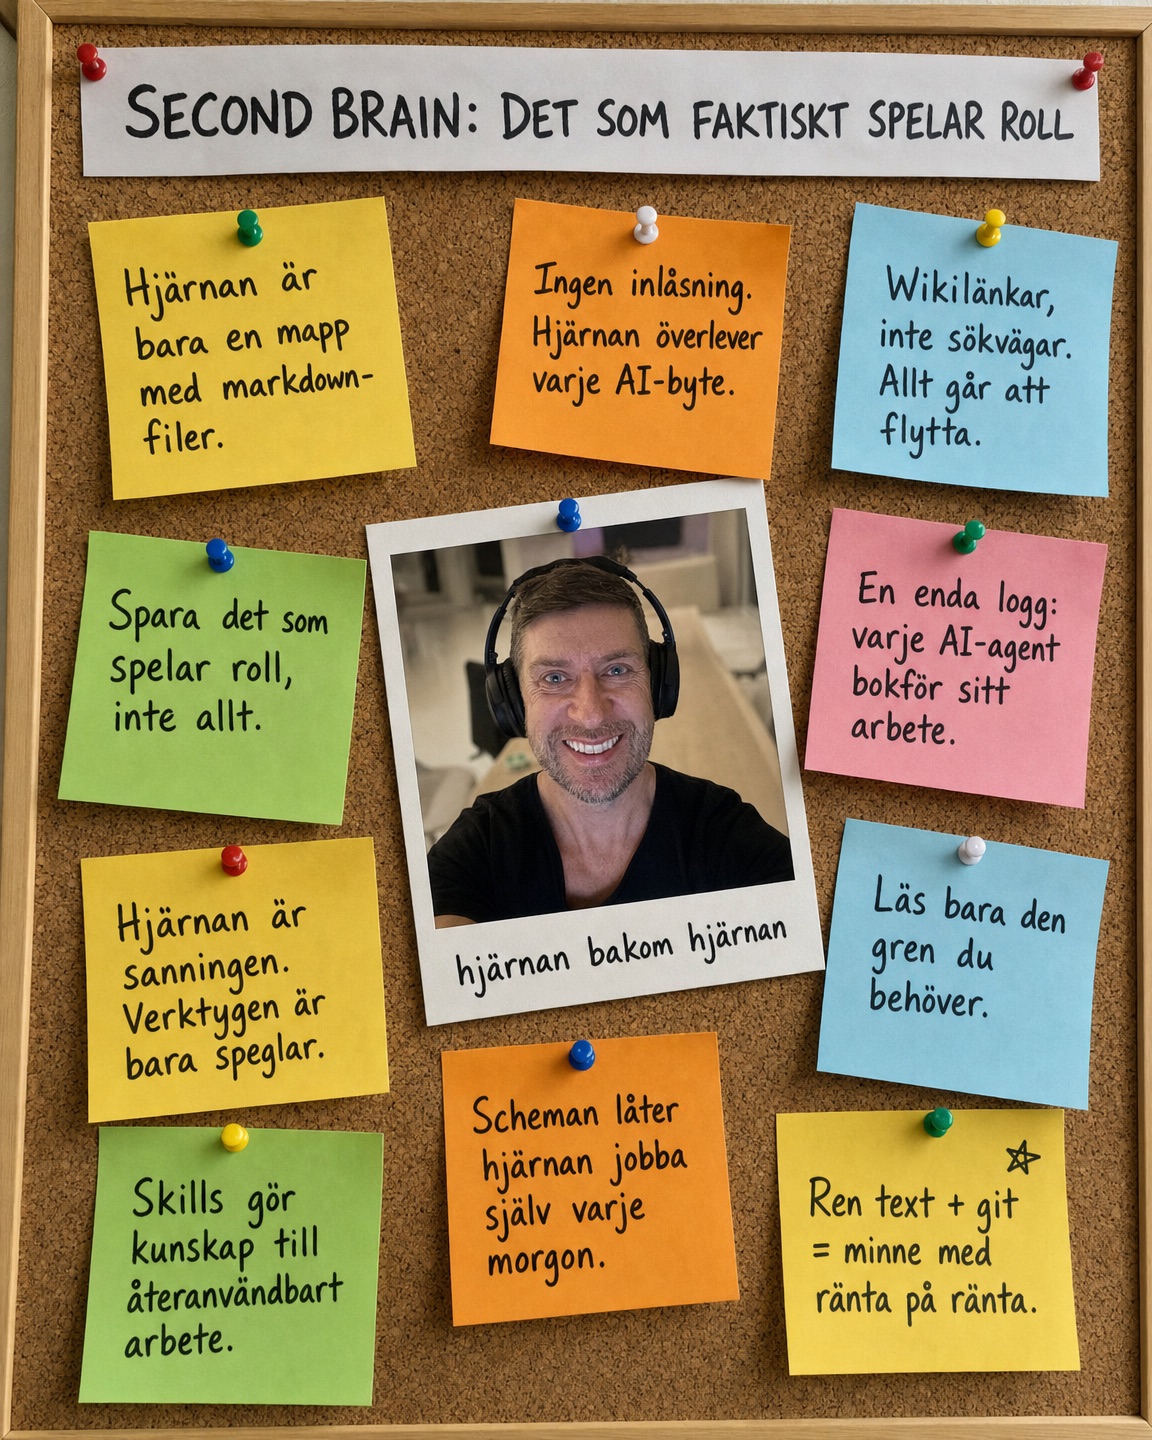 SECOND BRAIN: DET SOM FAKTISKT SPELAR ROLL
Hjärnan är
bara en mapp
med markdown-
filer.
Ingen inlåsning.
Hjärnan överlever
varje AI-byte.
Wikilänkar,
inte sökvägar.
Allt går att
flytta.
Spara det som
spelar roll,
inte allt.
hjärnan bakom hjärnan
En enda logg:
varje AI-agent
bokför sitt
arbete.
Hjärnan är
sanningen.
Verktygen är
bara speglar.
Läs bara den
gren du
behöver.
Skills gör
kunskap till
återanvändbart
arbete.
Scheman låter
hjärnan jobba
själv varje
morgon.
Ren text + git
= minne med
ränta på ränta.